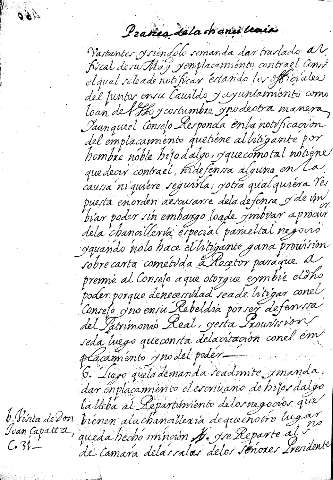 Practica de la chancilleria
Vastantes, y siendolo se manda dar traslado al
fiscal de su Mag. y emplacamiento contra el Consº
el qual se le ade notificar estando los officiales
del juntos en su Cavildo, y ayuntamiento como
loan de Vsso y costumbre y no de otra manera
Y aunque el Consejo Responda en la notificacion
del emplacamiento que tiene al litigante por
hombre noble hijodalgo, y que como tal no tiene
que decir contra el, ni defensa alguna en la
causa ni quiere seguirla; y otra qualquiera res
puesta en orden a escusarse de la defensa, y de im
biar poder sin embargo loa de ymbiar a procur
de la chancilleria especial para el tal negocio
y quando no lo hace el litigante gana provision
sobre carta cometida a Receptor para que a
premie al Consejo a que otorgue e ymbie el dho
poder, porque de necesidad se a de litigar con el
Consejo y no en su Rebeldia por ser defenssa
del Patrimonio Real, y esta Provission
se da luego que consta de la citacion con el em
placamiento y no del poder
6. Luego que la demanda se admite, y manda
dar emplacamiento el escrivano de hijos dalgo
la lleba al Repartimiento de los negocios que
vienen a la chancilleria de que en otro lugar
queda hecho mincion, y se Reparte al sno
de Camara de las salas de los señores Presidente
6. Visita de Don
Juan Capatta,
C. 31